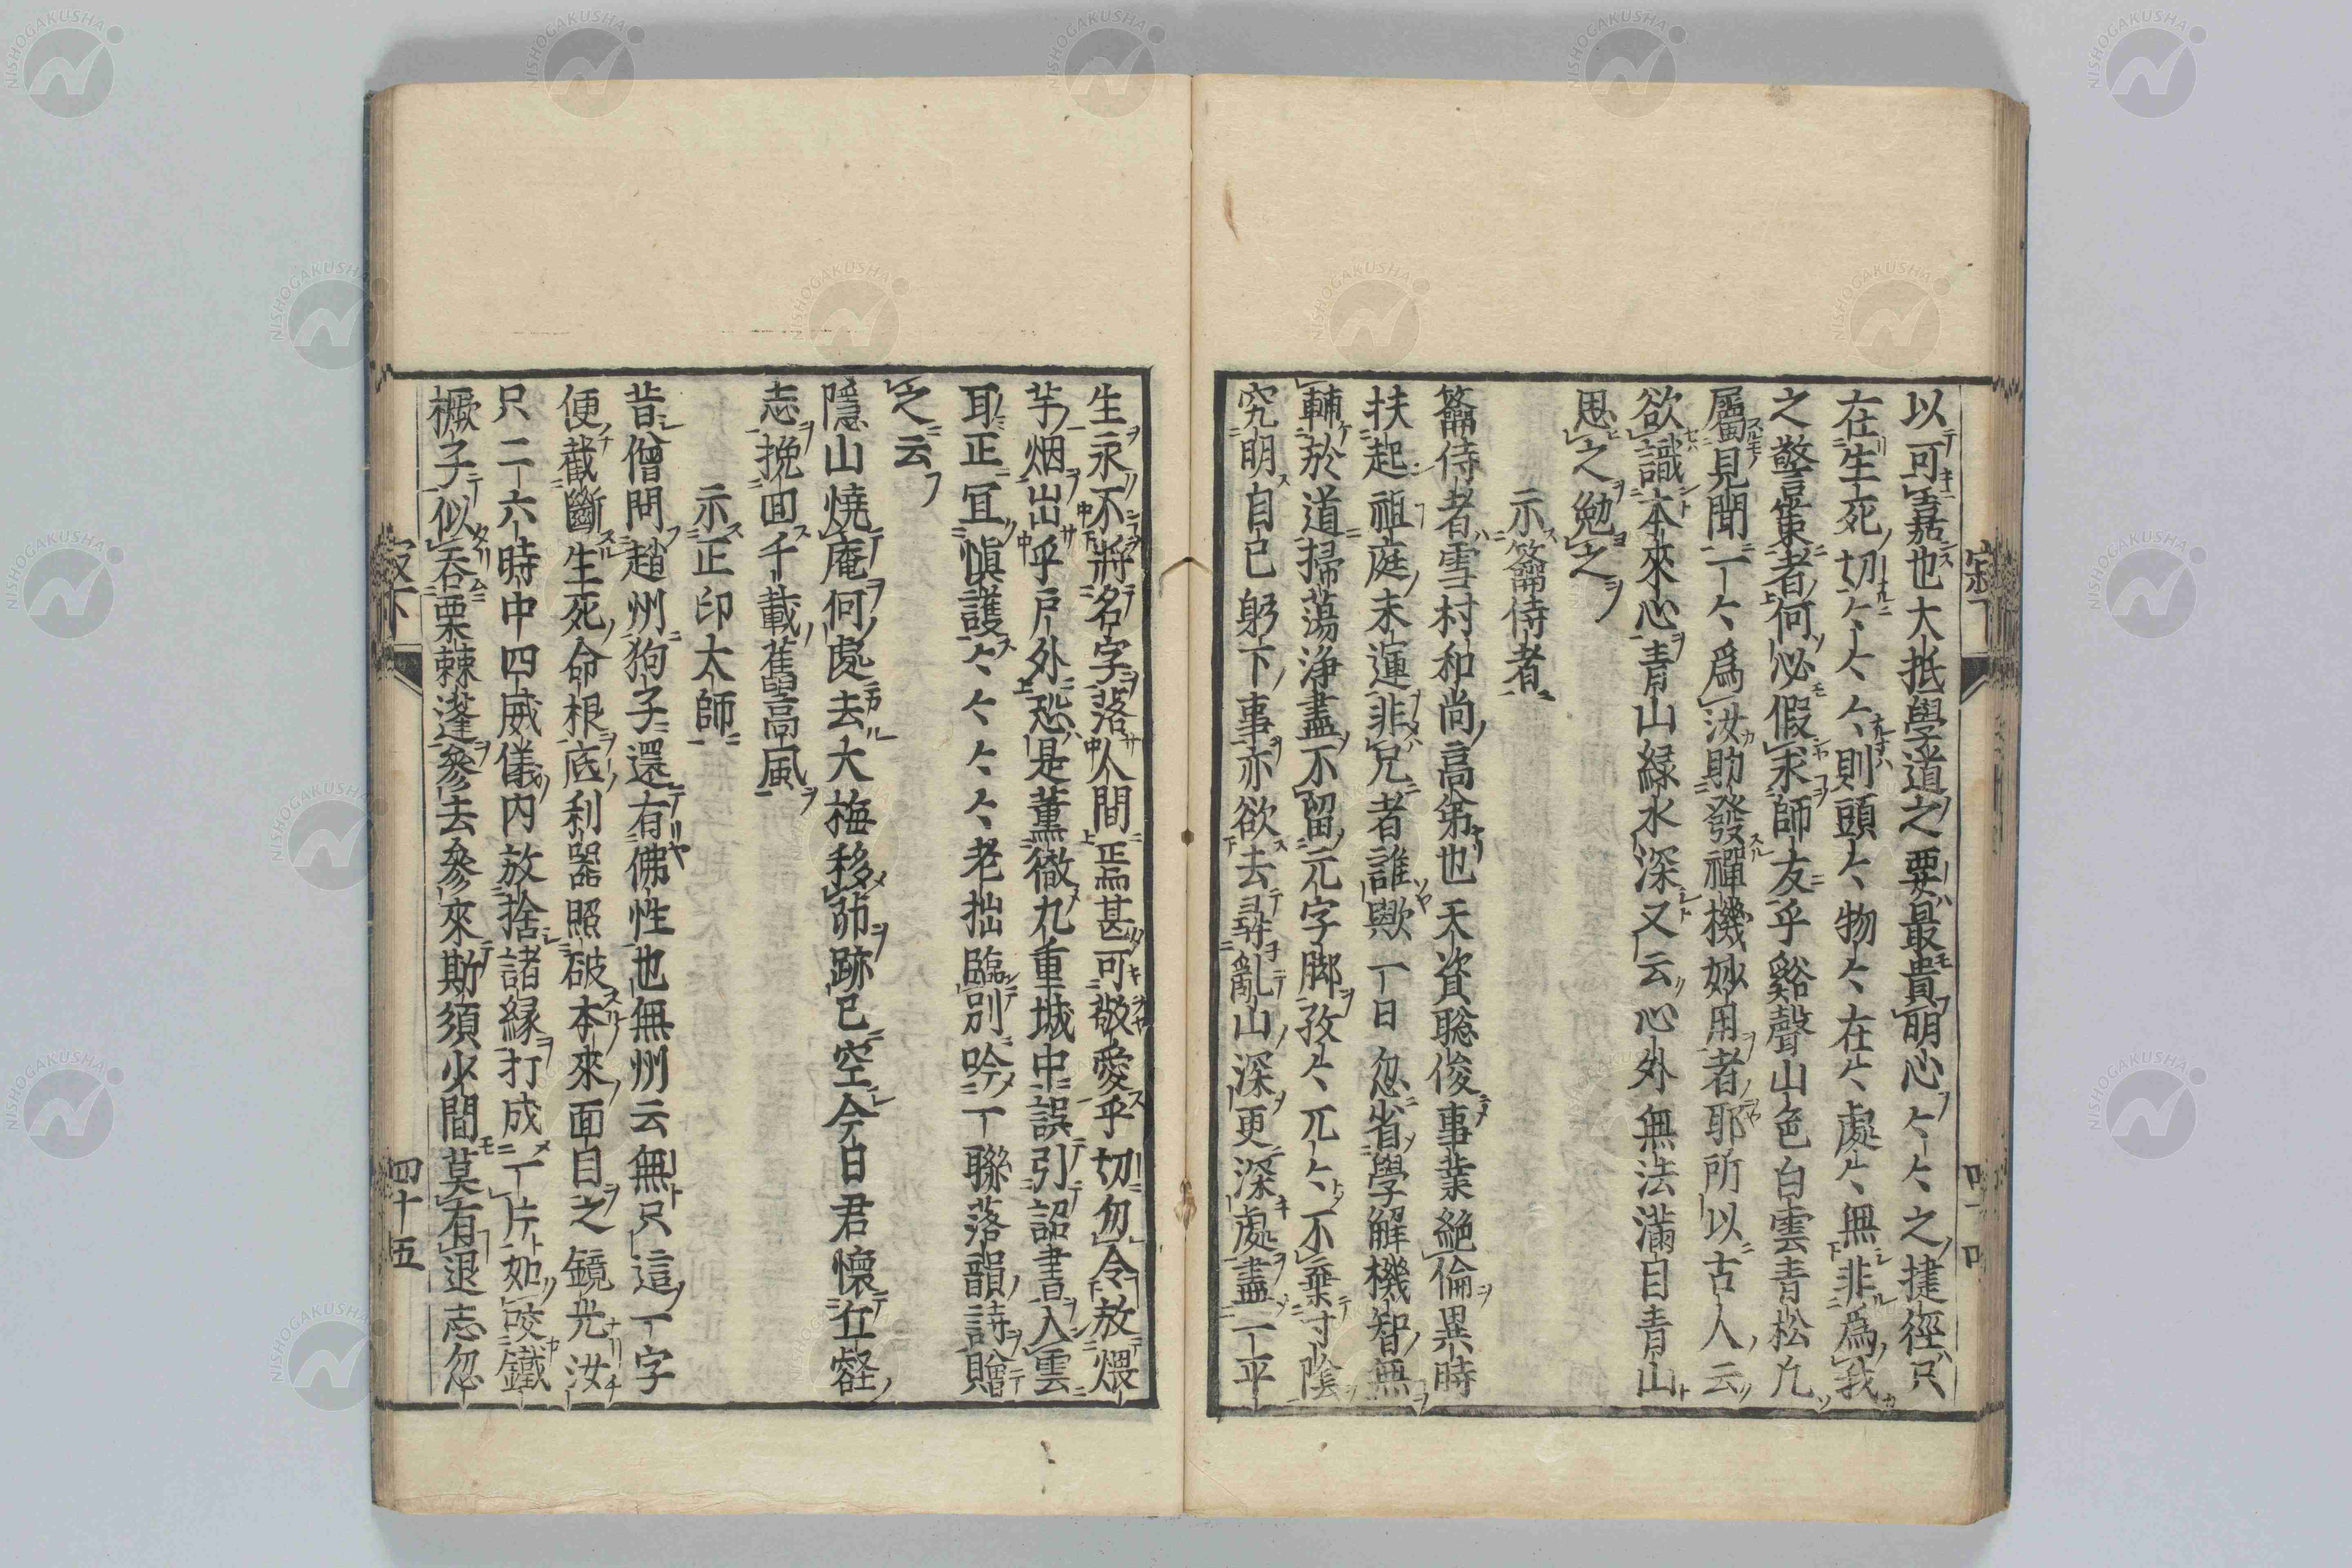 以可嘉也大抵學道之要最貴明心々々之捷徑只
在生死切々々々則頭々物々在々處々無非爲我
之警策者何必假求師友乎谿聲山色白雲青松凡
屬見聞一々爲汝助發禪機妙用者耶所以古人云
欲識本來心青山緑水深又云心外無法滿目青山
思之勉之
示籥侍者
籥侍者雪村和尚高第也天資聡俊事業絶倫異時
扶起祖庭末運非兄者誰歟一日忽省學解機智無
輔於道掃蕩浄盡不留元字脚孜々兀々不棄寸陰
究明自己躬下事亦欲去尋亂山深更深處盡一平
生永不將名字落人間焉甚可敬愛乎切勿令放煨
芋烟出乎戸外恐是薫徹九重城中誤引詔書入雲
耳正冝愼護々々々々老拙臨別吟一聯落韻詩贈
之云
隱山燒庵何處去大梅移茆跡已空今日君懷丘壑
志挽回千載舊高風
示正印太師
昔僧問趙州狗子還有佛性也無州云無只這一字
便截斷生死命根底利器照破本來面目之鏡光汝
只二六時中四威儀内放捨諸縁打成一片如咬鐵
橛子似呑栗棘蓬參去參來斯須少間莫有退志忽
寂下
四十五